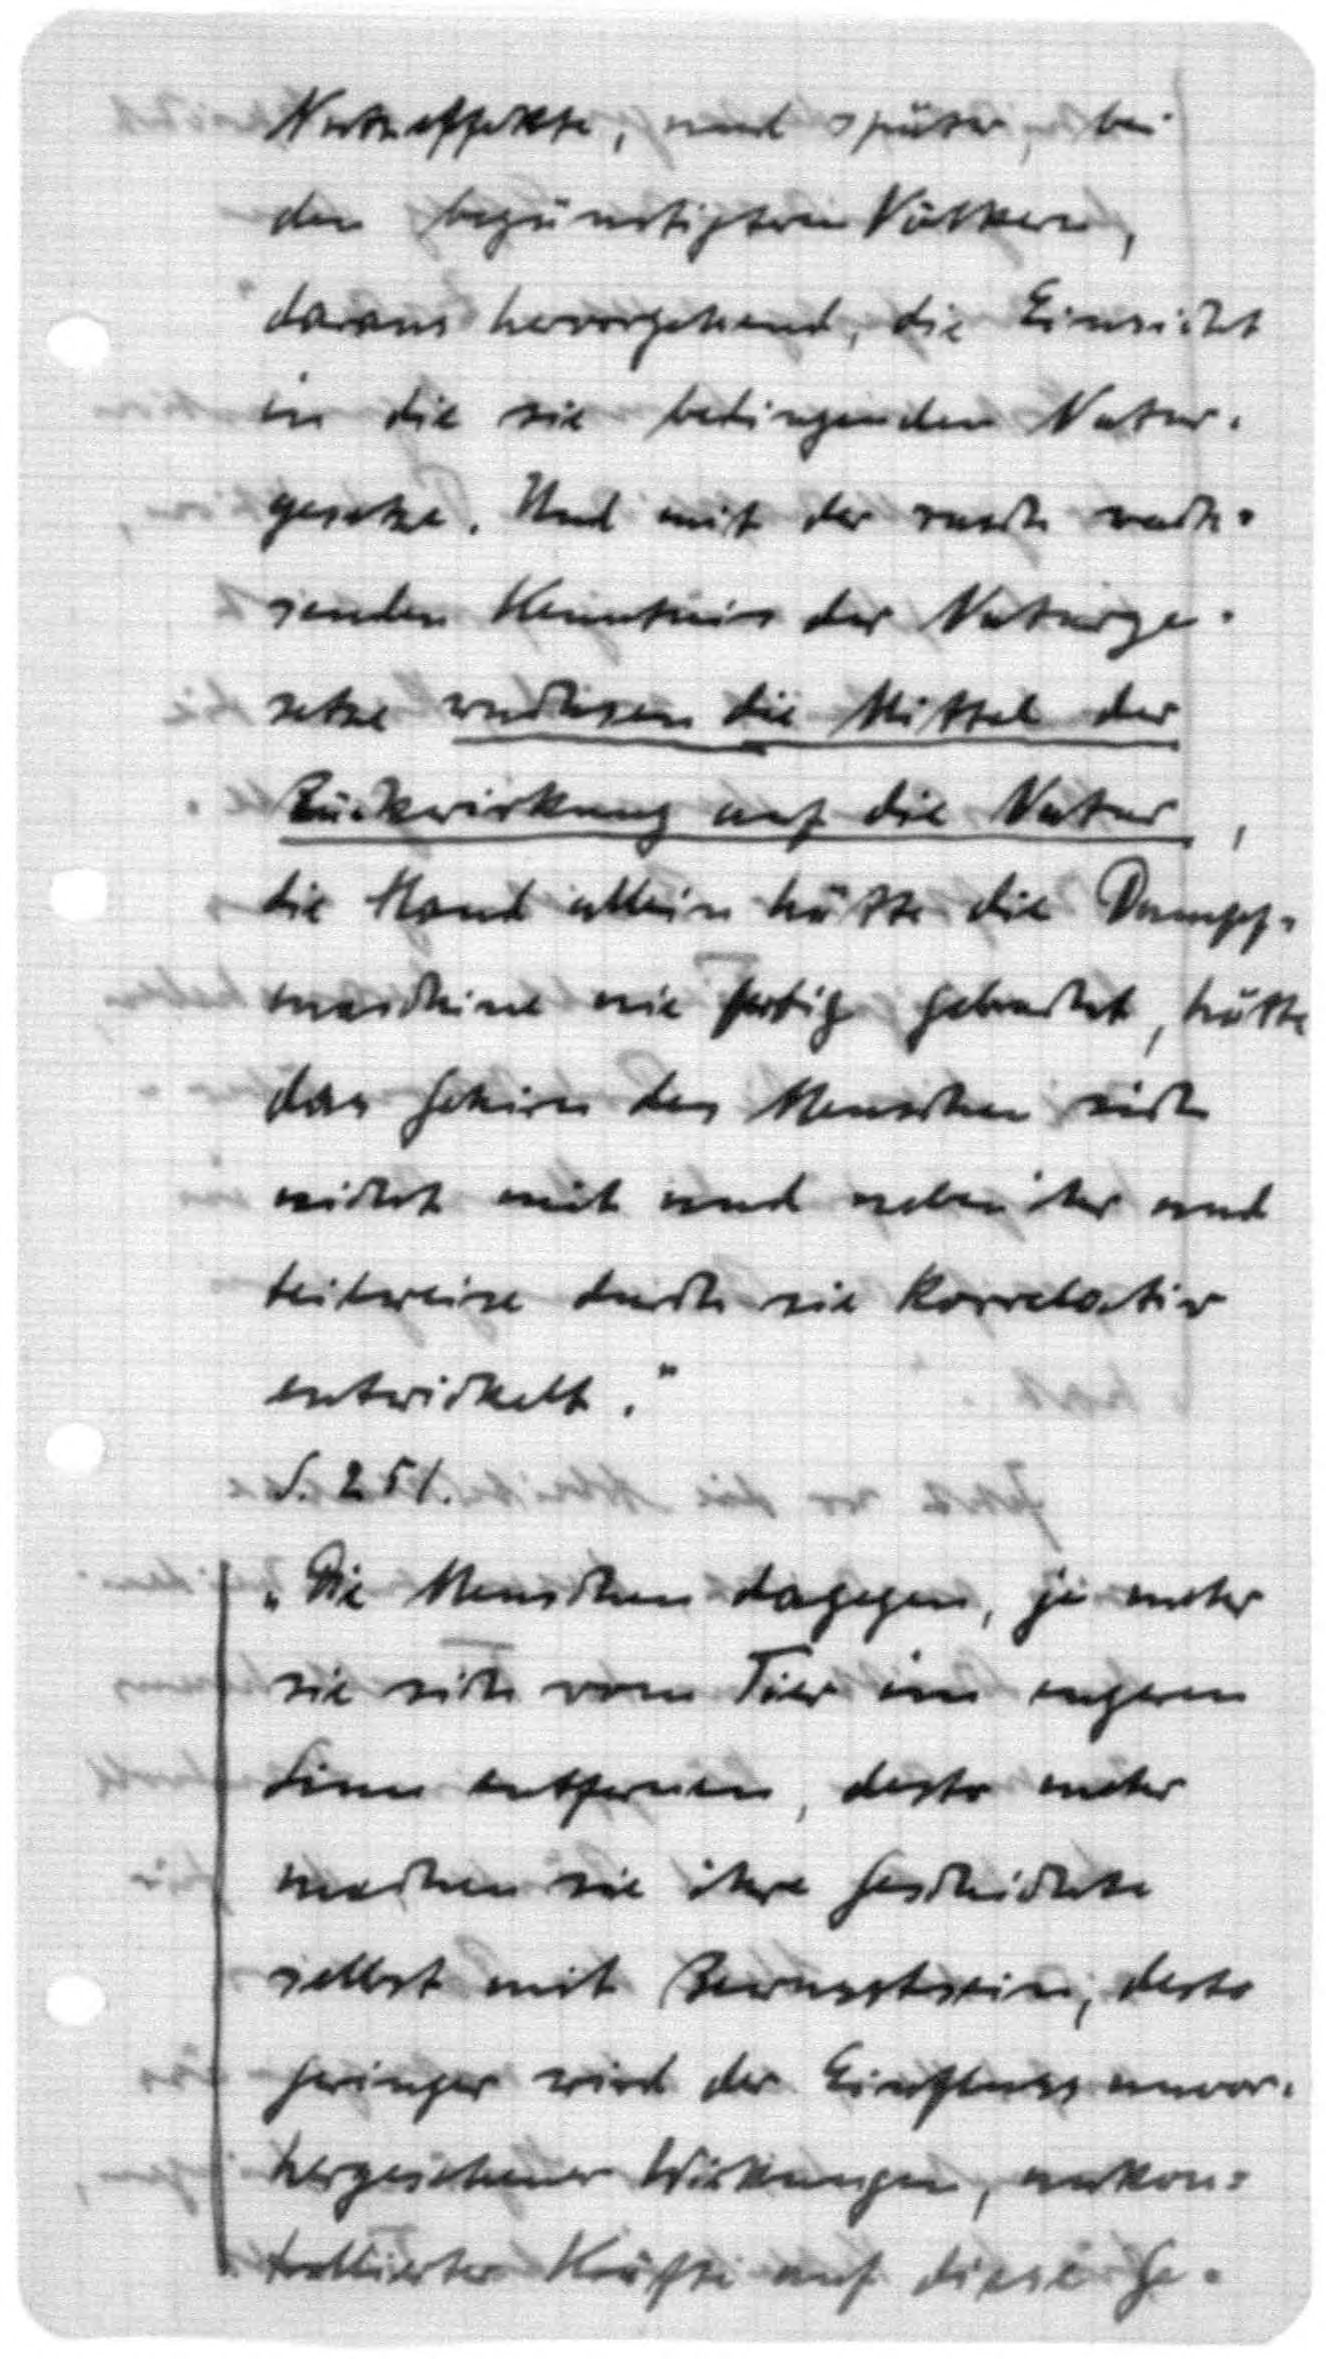 Nutzeffekte, und später, bei
den begünstigteren Völkern,
daraus hervorgehend, die Einsicht
in die sie bedingenden Natur-
gesetze. Und mit der rasch wach-
senden Kenntnis der Naturge-
setze wuchsen die Mittel der
Rückwirkung auf die Natur,
die Hand allein hätte die Dampf-
maschine nie fertig gebracht, hätte
das Gehirn des Menschen sich
nicht mit und neben ihr und
teilweise durch sie korrelativ
entwickelt."
S. 251.
„Die Menschen dagegen, je mehr
sie sich vom Tier im engeren
Sinn entfernen, desto mehr
machen sie ihre Geschichte
selbst mit Bewusstsein, desto
geringer wird der Einfluss unvor-
hergesehener Wirkungen, unkon-
trollierter Kräfte auf diese Ge-